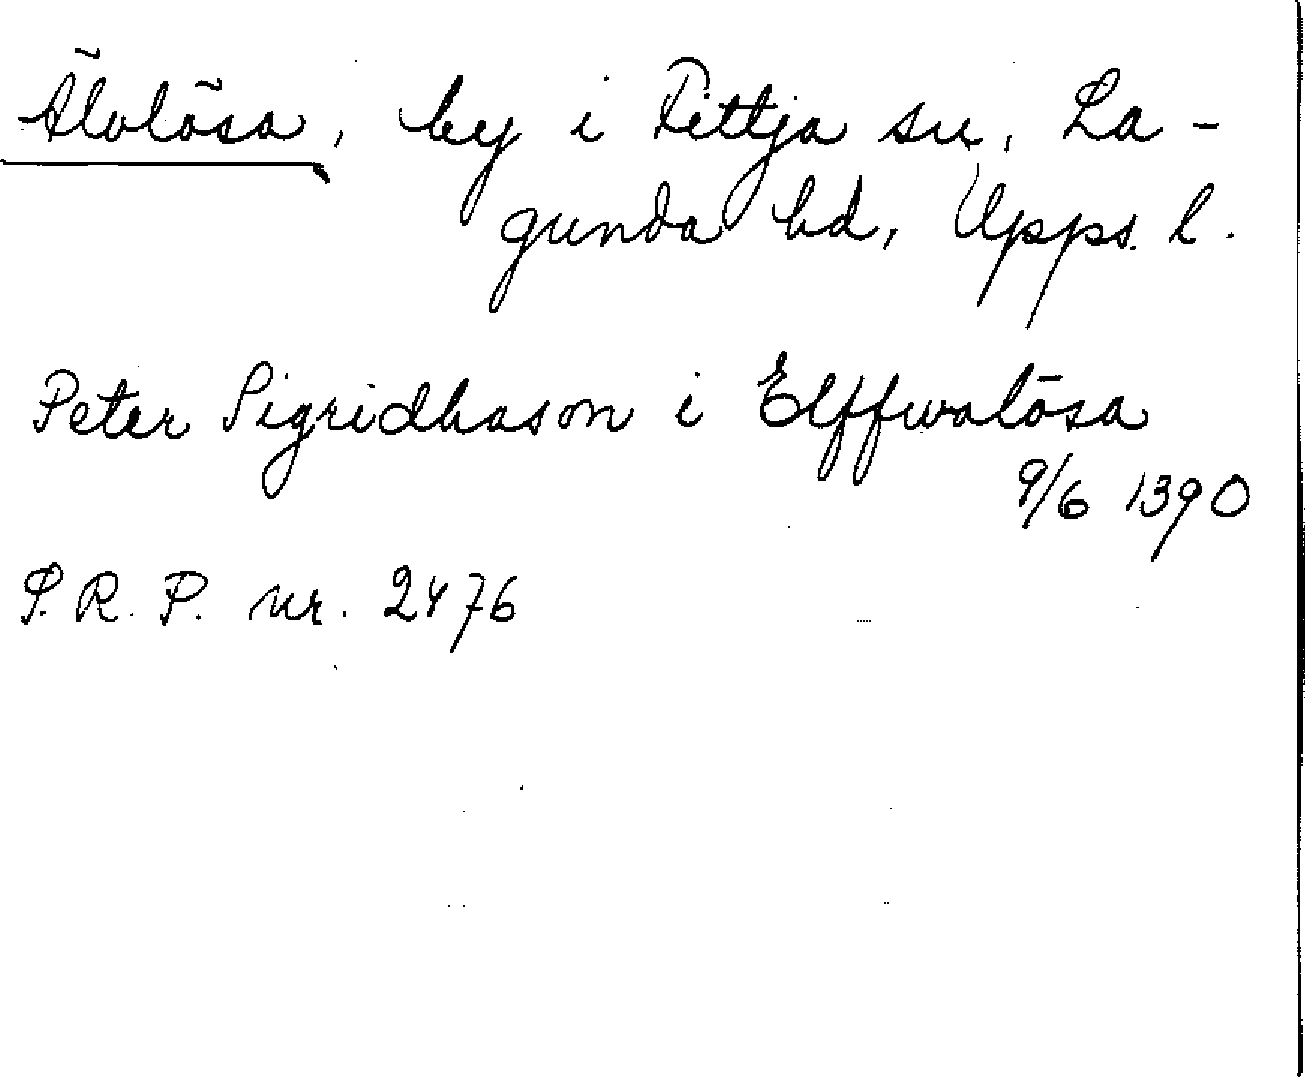 Älvlösa, by i Fittja sn, La-
gunda hd, Upps. l.
Peter Sigridhason i Elffwalösa
9/6 1390
S.R.P. nr. 2476